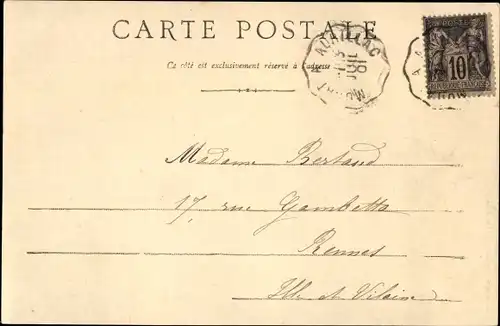 CARTE POSTALE
Ce côté est exclusivement réservé à l'adresse
AURILLAC
10
REPUBLIQUE FRANCAISE
Madame Bertaud
17, rue Gambetta
Rennes
Ille et Vilaine